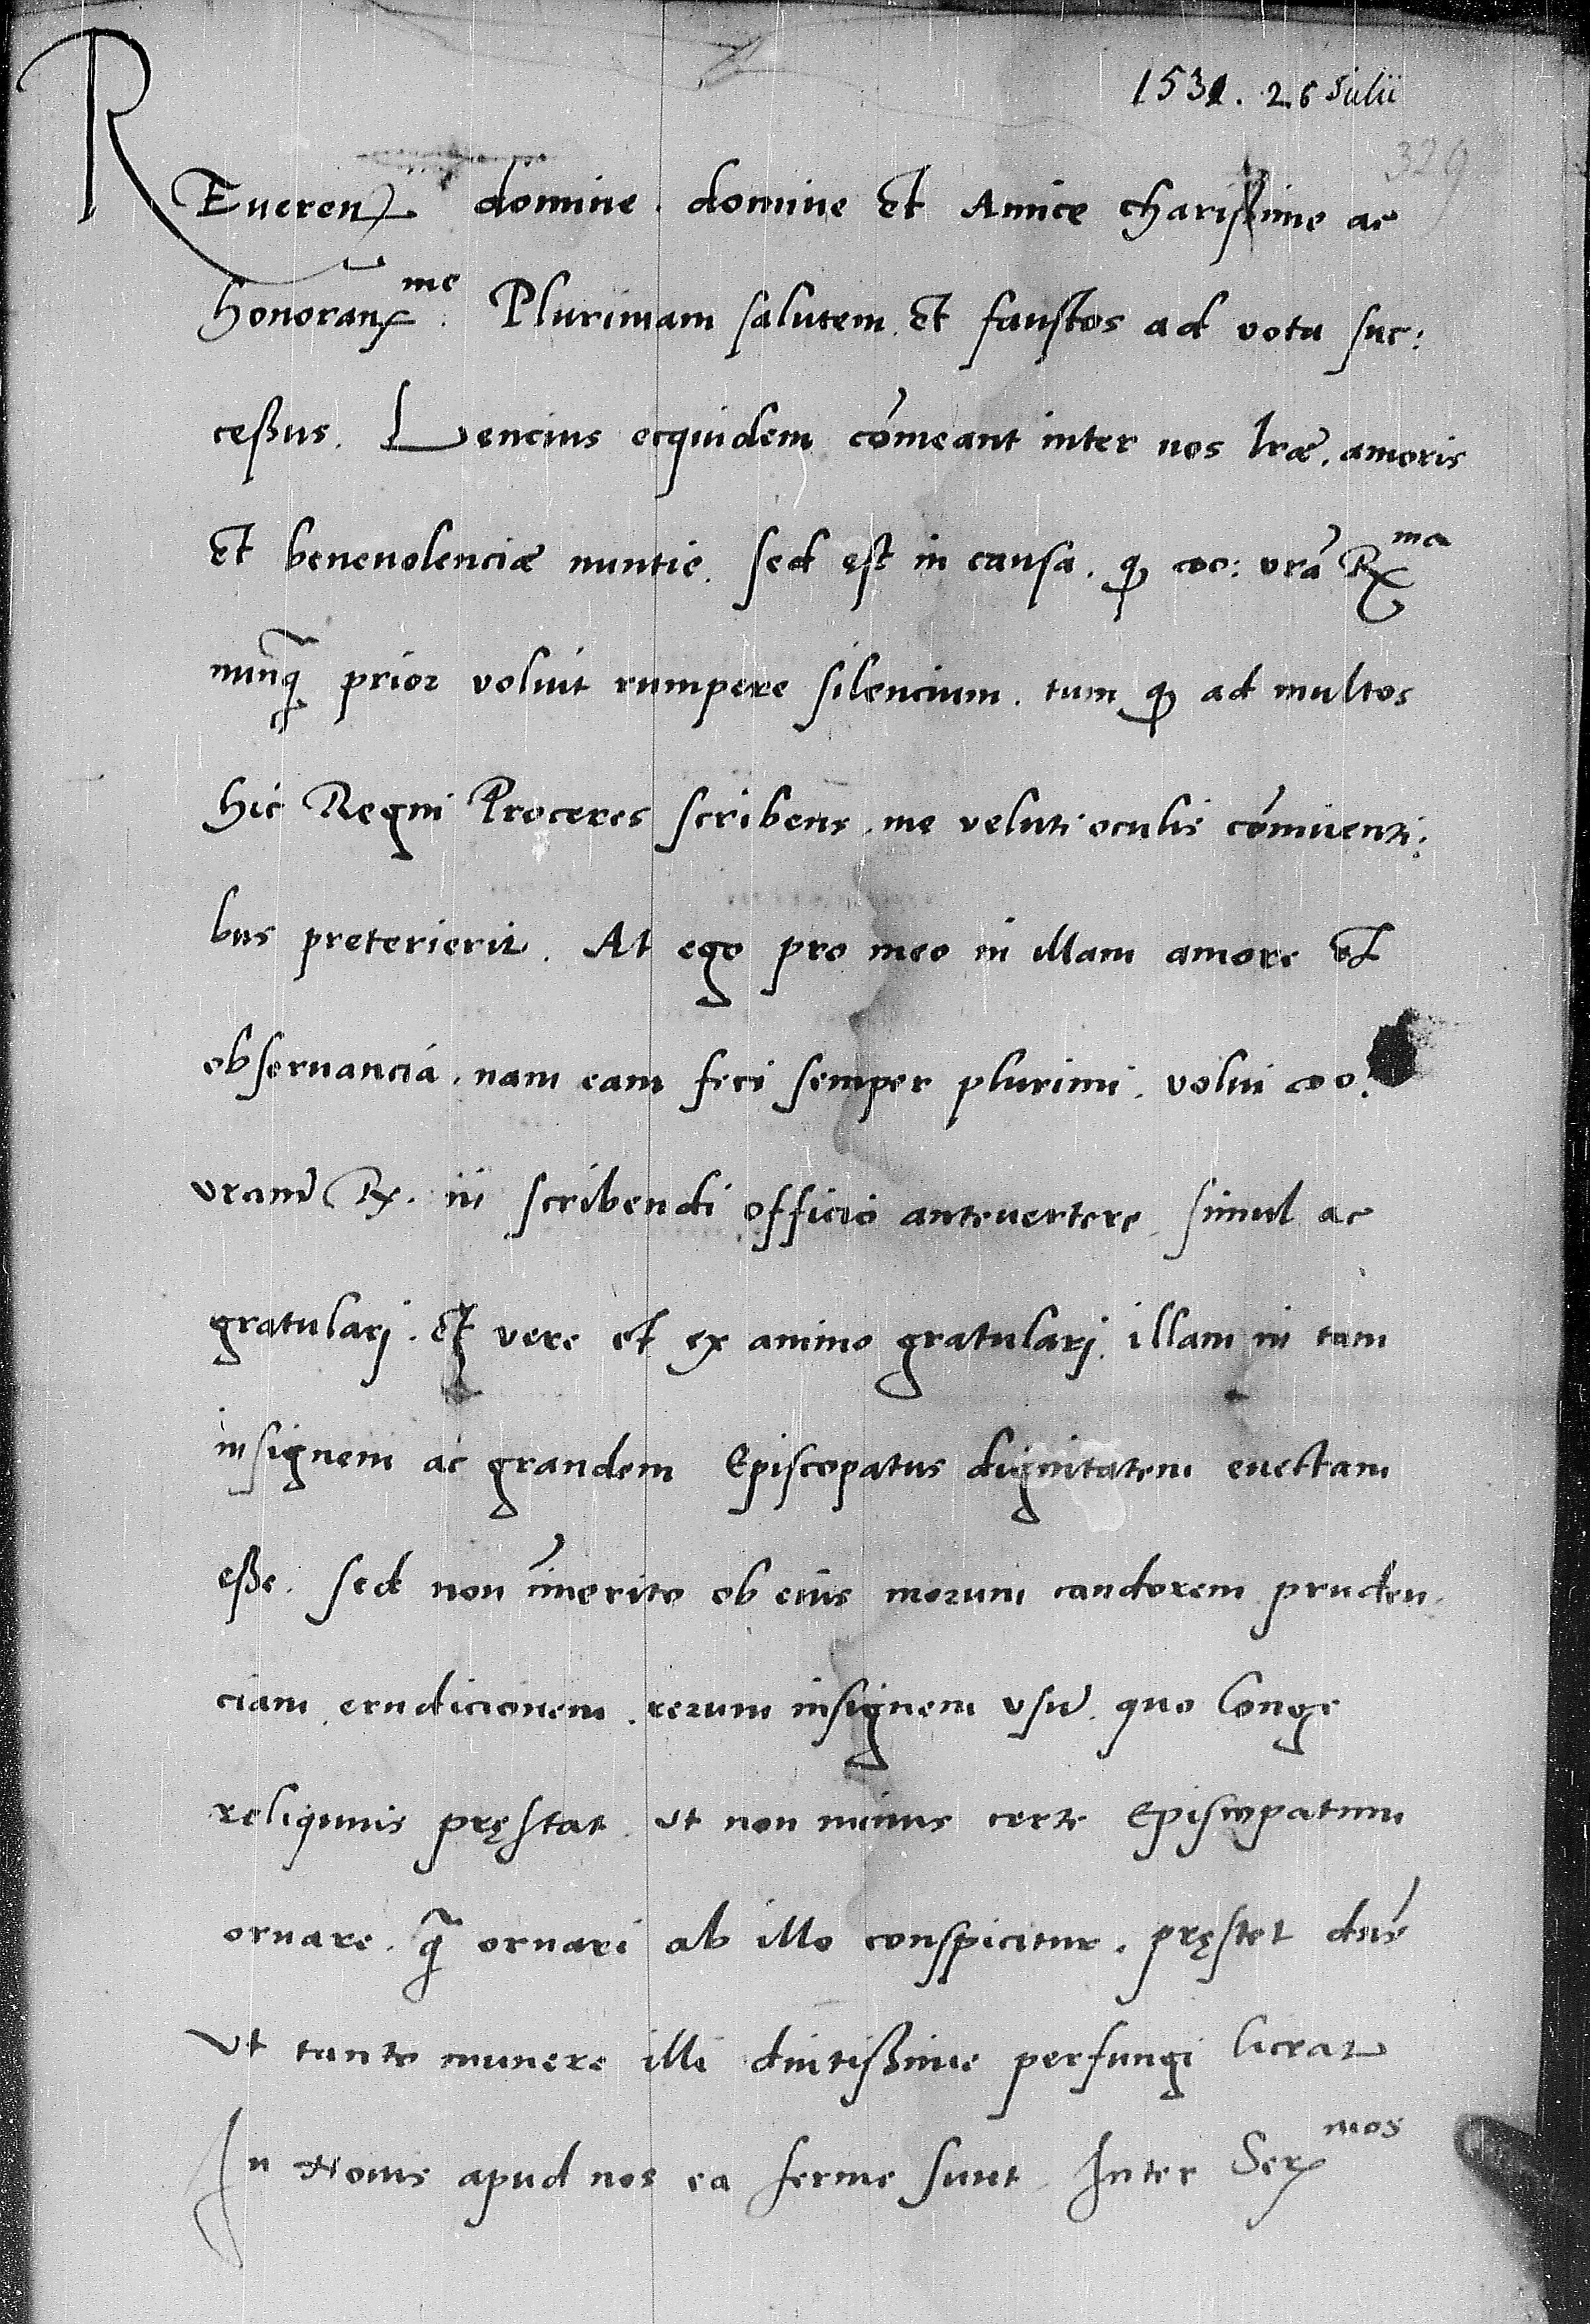 1531. 26 Julii
329
REuerend domine. domine et Amice charissime ac
honorand me. Plurimam salutem. et faustos ad vota suc:
ceßus. Lencius ecquidem comeant inter nos lræ. amoris
et benevolenciæ nuntie. sed est in causa. q coo: vra R ma
nunq prior voluit rumpere silencium. tum q ad multos
hic Regni Proceres scribens. me veluti oculis conniventi:
bus preterierit. At ego pro meo in illam amore et
observancia. nam eam feci semper plurimi. volui coo:
vram R. in scribendi officio antevertere. simul ac
gratulari. et vere et ex animo gratulari. illam in tam
insignem ac grandem Episcopatus dignitatem evectam
eße. sed non imerito ob eius morum candorem pruden
ciam. erudicionem. rerum insignem vsu. quo longe
reliquuis pręstat. ut non minus certe Episcopatum
ornare. q ornari ab illo conspicitur. pręstet dns
Vt tanto munere illi diutißime perfungi liceat
In Novis apud nos ea ferme sunt. Inter Ser mos